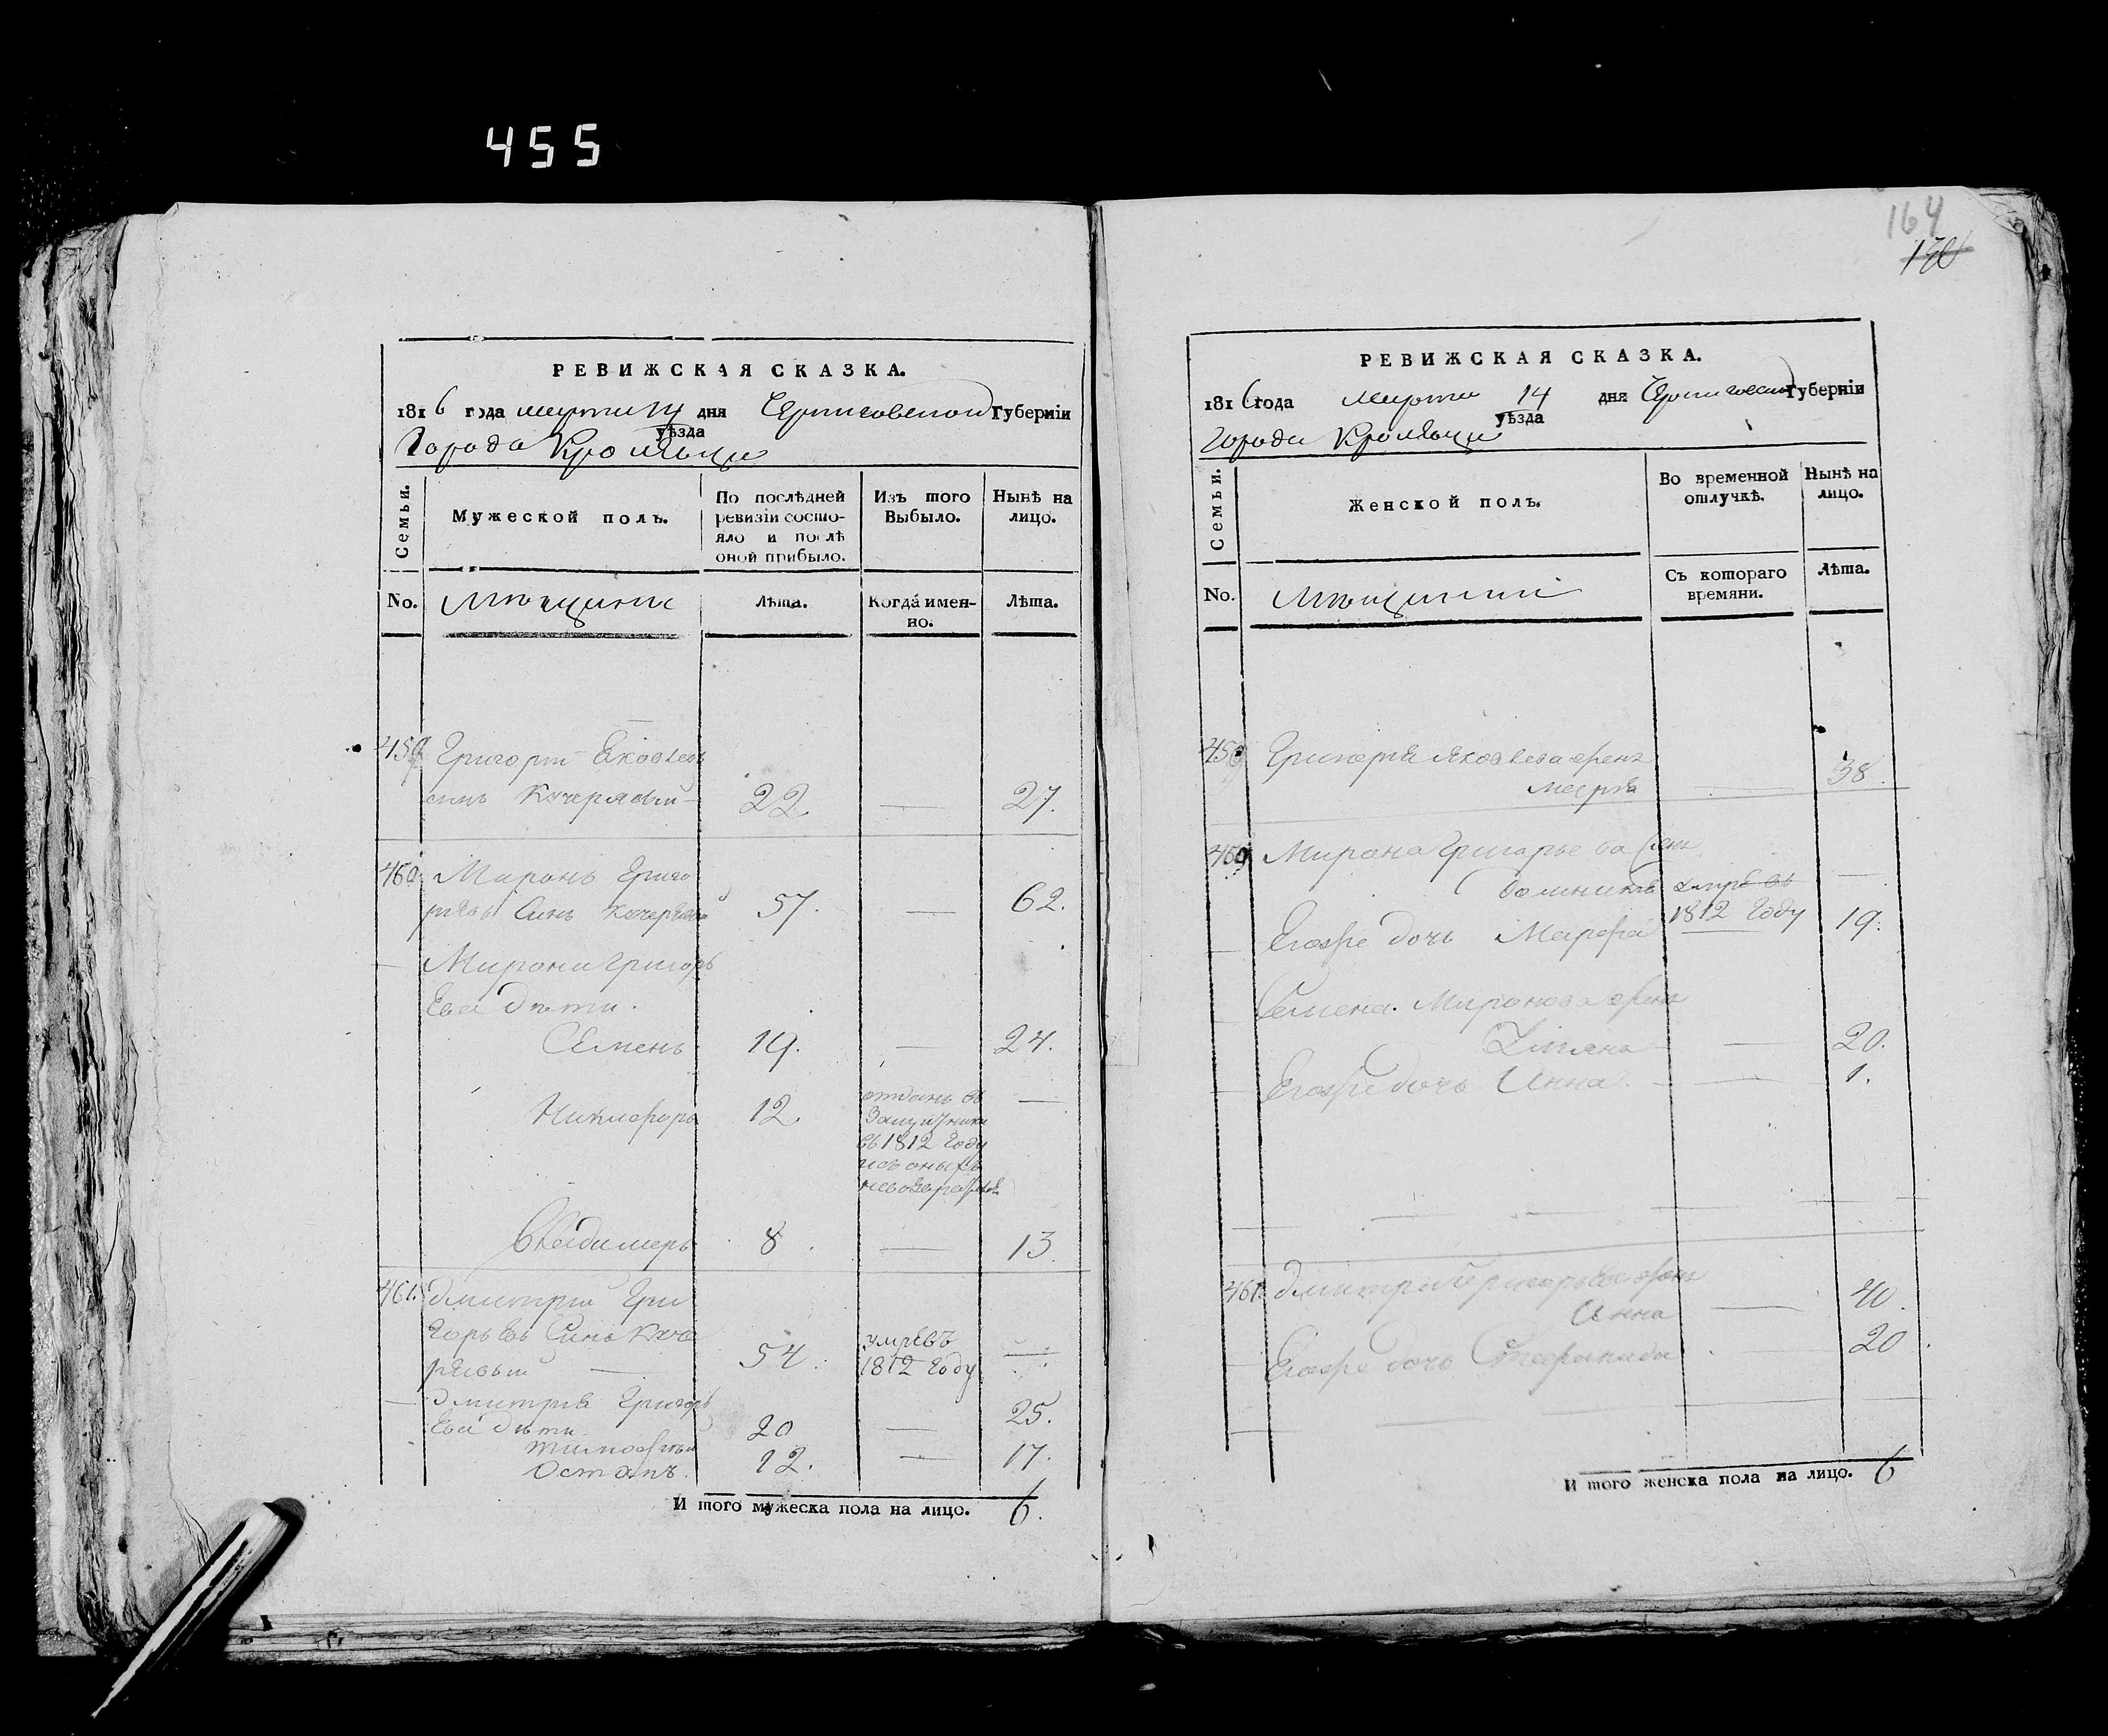 455
164
130
РЕВИЖСКАЯ СКАЗКА.
1816 года марта 14 дня Черниговской Губернїи
уѣзда
Города Кролѣвца
Семьи.
Мужеской полъ.
По послѣдней ревизїи состо-
яло и послѣ
оной прибыло.
Изъ того
Выбыло.
Нынѣ на
лицо.
No.
Мѣщане
Лѣта.
Когда имен-
но.
Лѣта.
459 Григорий Яковлевъ
синъ Кучерявий 22 — 27.
460. Миронъ Григо
риевъ Синъ Кучерявий 57. — 62.
— Мирона Григорь
ева дѣти.
Семенъ 19. — 24.
Никифоръ 12. отданъ въ —
въ 1812 Году
Владимеръ 8. — 13.
461. Дмитрий Гри
горьевъ Синъ Куче
рявый — 54. умревъ
1812 Году —
— Дмитрия Григорь
ева дѣти
Тимофѣй 20 — 25.
Остапъ. 12. — 17.
И того мужеска пола на лицо. 6.
РЕВИЖСКАЯ СКАЗКА.
1816 года Марта 14 дня Черниговской Губернїи
уѣзда
Города Кролѣвца
Семьи.
Женской полъ.
Во временной
отлучкѣ.
Нынѣ на
лицо.
No.
Мѣщанки
Съ котораго
времяни.
Лѣта.
459 Григория Яковлева жена
— 38.
460 Мирона Григорьева жена
умре въ —
1812 Году
— Егожъ дочь Марфа 19.
— Семена Миронова жена
Улияна — 20.
— Егожъ дочь Анна. — 1.
461. Дмитрия Григорьева жена
Анна — 40.
— Егожъ дочь Стефанида — 20.
И того женска пола на лицо. 6